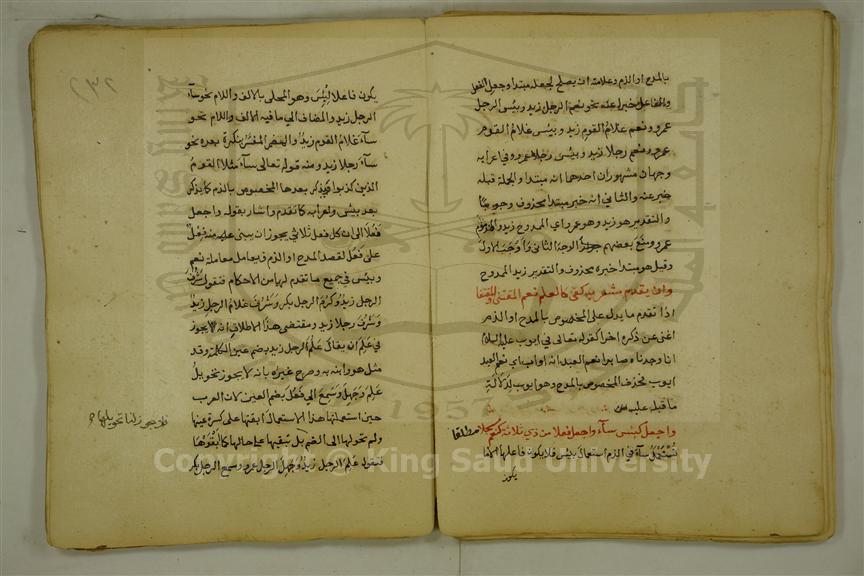 بالمدح او الذم وعلامته ان يصلح لجعله مبتدا وجعل الفعل
والفاعل خبرا عنه نحو نعم الرجل زيد وبئس الرجل
عمرو ونعم غلام القوم زيد وبئس غلام القوم
عمرو ونعم رجلا زيد وبئس رجلا عمرو وفي اعرابه
وجهان مشهوران احدهما انه مبتدا والجملة قبله
خبر عنه والثاني انه خبر مبتدا محذوف وجوبا
والتقدير هو زيد وهو عمرو اي الممدوح زيد والمذموم
عمرو ومنع بعضهم الوجه الثاني واوجب الاول
وقيل هو مبتدا خبره محذوف والتقدير زيد الممدوح
وان يقدم مشعر به كفى كالعلم نعم المقتنى والمقتفا
اذا تقدم ما يدل على المخصوص بالمدح او الذم
اغنى عن ذكره اخرا كقوله تعالى في ايوب عليه السلام
انا وجدناه صابرا نعم العبد انه اواب اي نعم العبد
ايوب فحذف المخصوص بالمدح وهو ايوب لدلالة
ما قبله عليه ص
واجعل كبئس ساء واجعل فعلا من ذي ثلاثة كنعم مسجلا
تستعمل ساء في الذم استعمال بئس فلا يكون فاعلها الا ما
يكون
يكون فاعلا لبئس وهو المحلى بالالف واللام نحو ساء
الرجل زيد والمضاف الى ما فيه الالف واللام نحو
ساء غلام القوم زيد والمضمر المفسر بنكرة بعده نحو
ساء رجلا زيد ومنه قوله تعالى ساء مثلا القوم
الذين كذبوا ويذكر بعدها المخصوص بالذم كما يذكر
بعد بئس واعرابه كما تقدم واشار بقوله واجعل
فعلا الى ان كل فعل ثلاثي يجوز ان يبنى منه فعل
على فعل لقصد المدح او الذم ويعامل معاملة نعم
وبئس في جميع ما تقدم لهما من الاحكام فتقول شرف
الرجل زيد وكرم الرجل بكر وشرف غلام الرجل زيد
وشرف رجلا زيد ومقتضى هذا الاطلاق انه يجوز
في علم ان يقال علم الرجل زيد بضم عين الكلمة وقد
مثل هو وابنه به وصرح غيره بانه لا يجوز تحويل
علم وجهل وسمع الى فعل بضم العين لان العرب
حين استعملتها هذا الاستعمال ابقتها على كسرة عينها
ولم تحولها الى الضم بل نبقيها على حالها كما ابقوها
فتقول علم الرجل زيد وجهل الرجل عمرو وسمع الرجل بكر
فلا يجوز لنا تحويلها
1957
Copyright © King Saud University